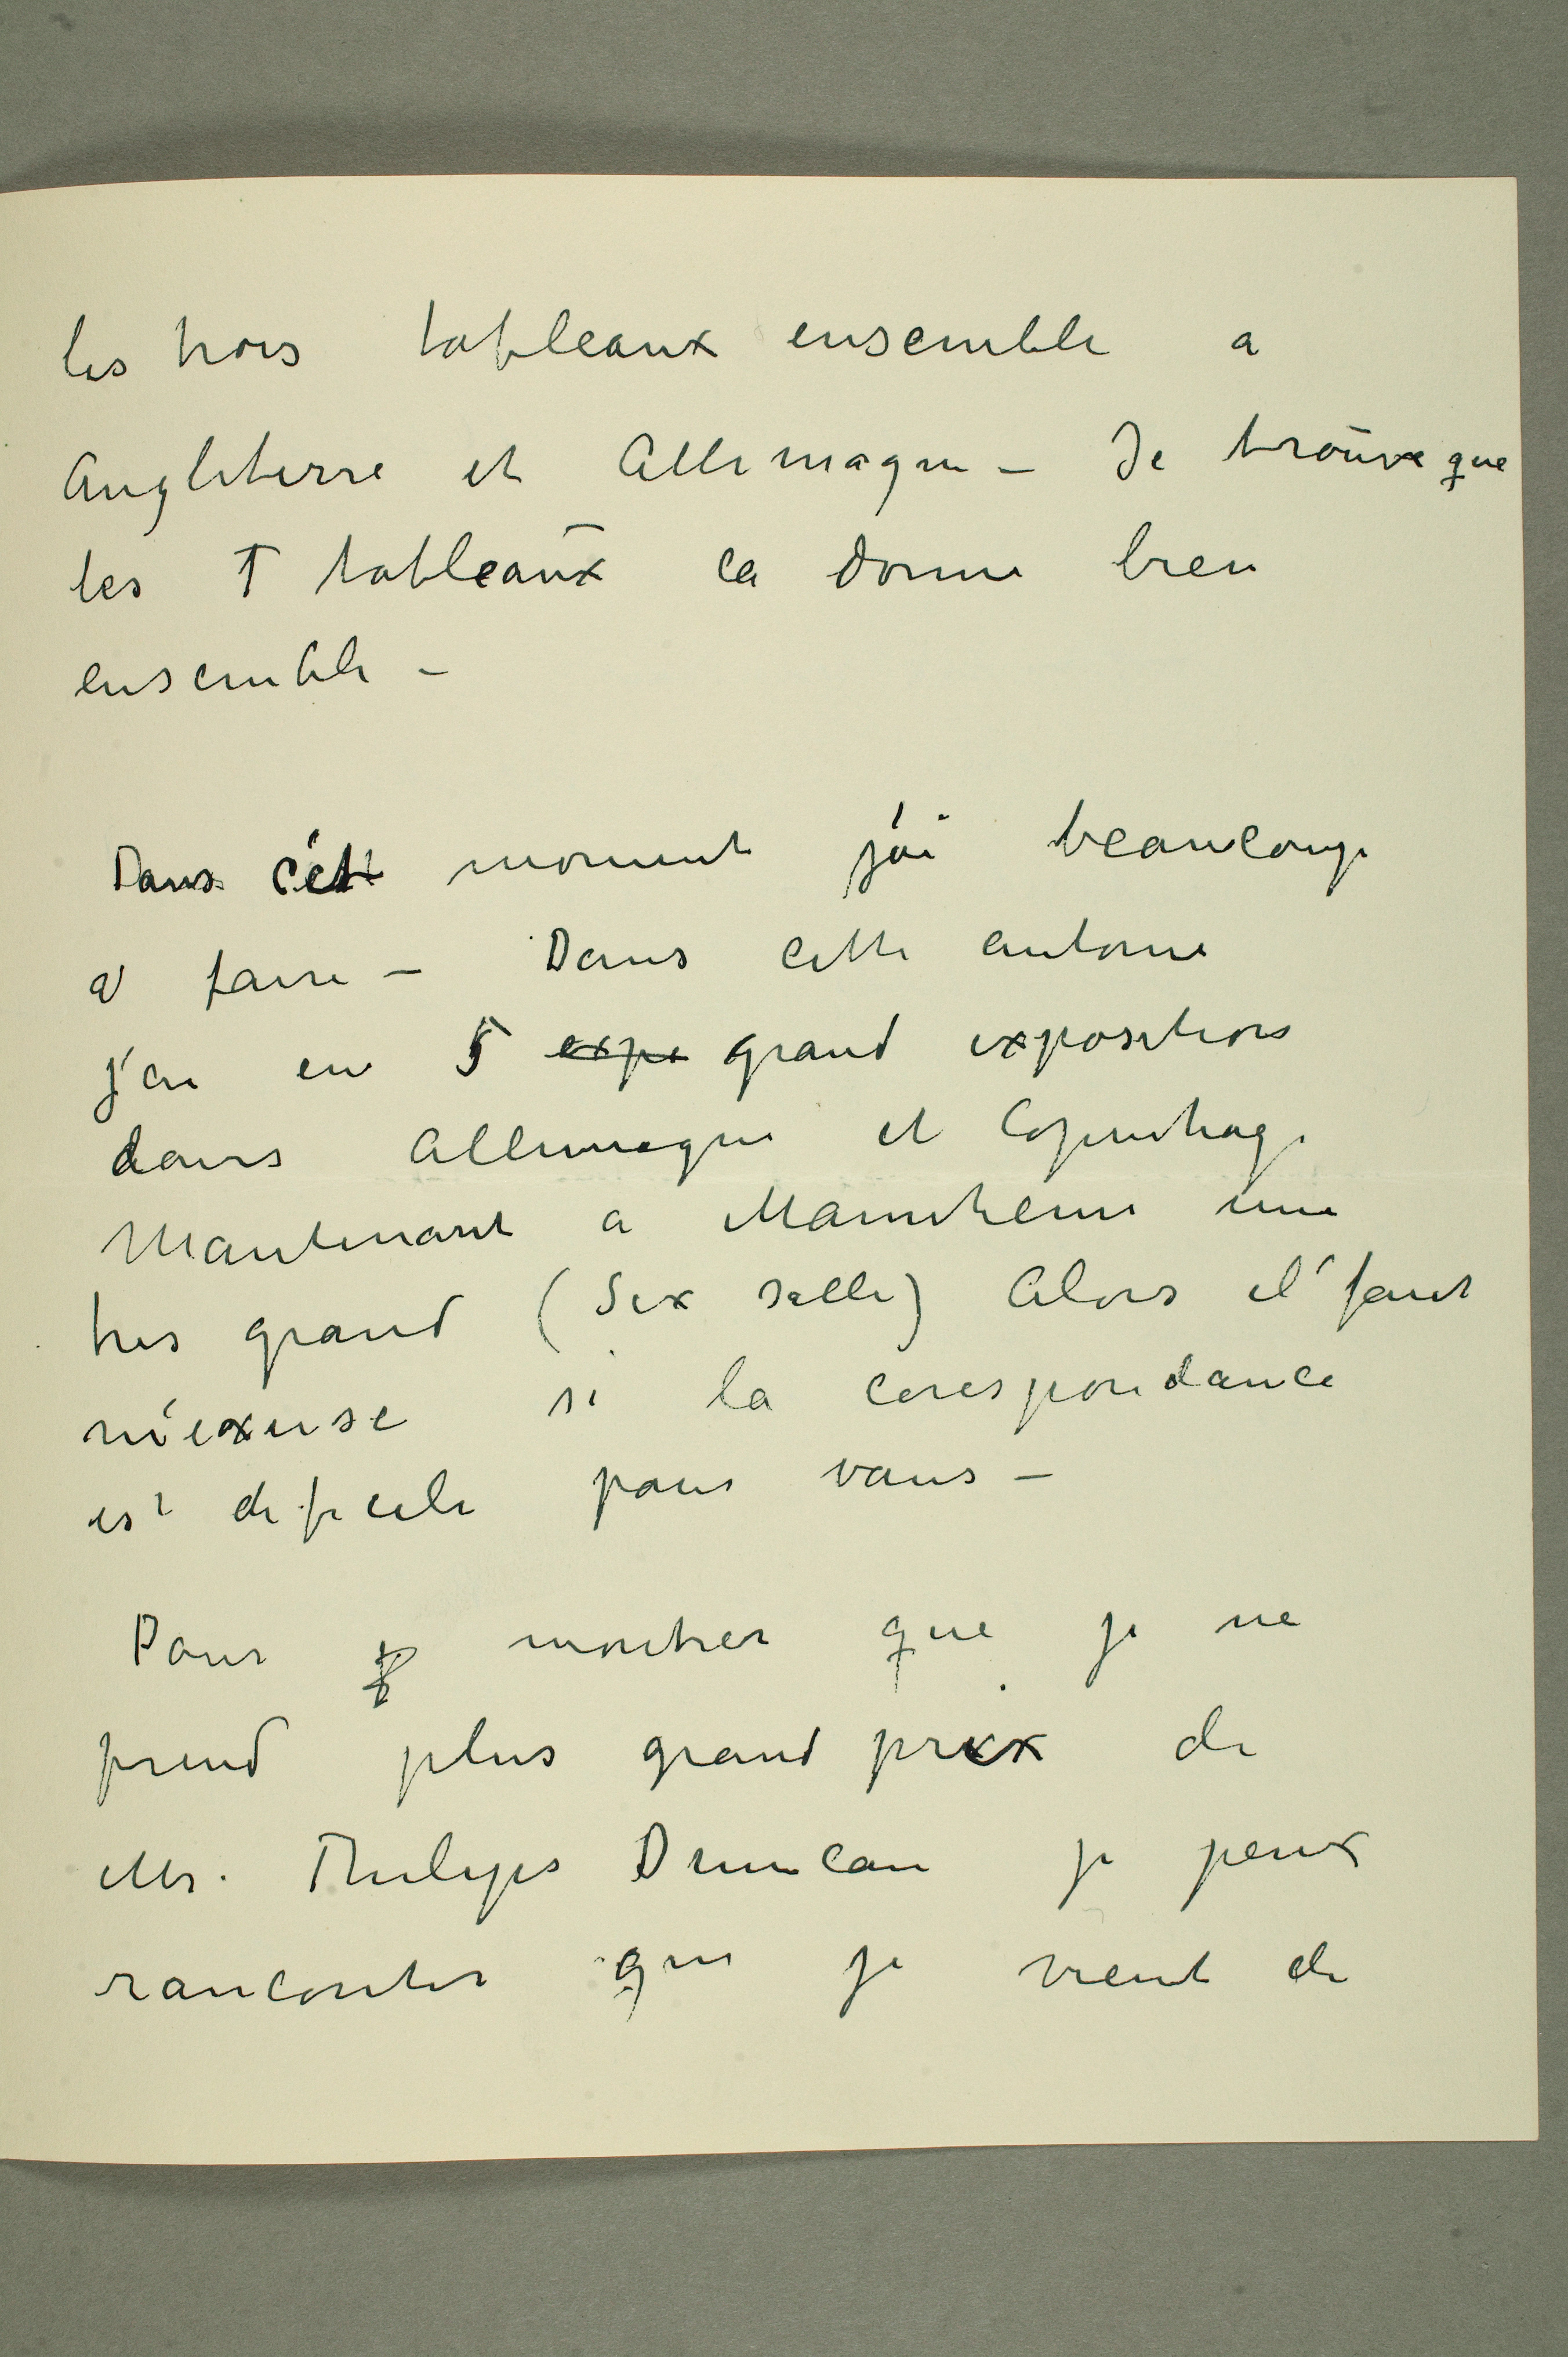 les trois tableaux ensemble a
Angleterre et Allemagne – Je trouve que
les T tableaux ca donne bien
ensemble –
Dans cétt moment jái beaucoup
a' faire – Dans cette automne
j'ai eu 5 expo grand expositions
dans Allemagne et Copenhage
Maintenant a Mannheim une
tres grand (Six salle) Alors il' faut
m'éxcuse si la corespondance
est dificile pour vous –
Pour montrer que je ne
prend plus grand prix de
Mr. Philips Duncan je peux
raconter que je vient de